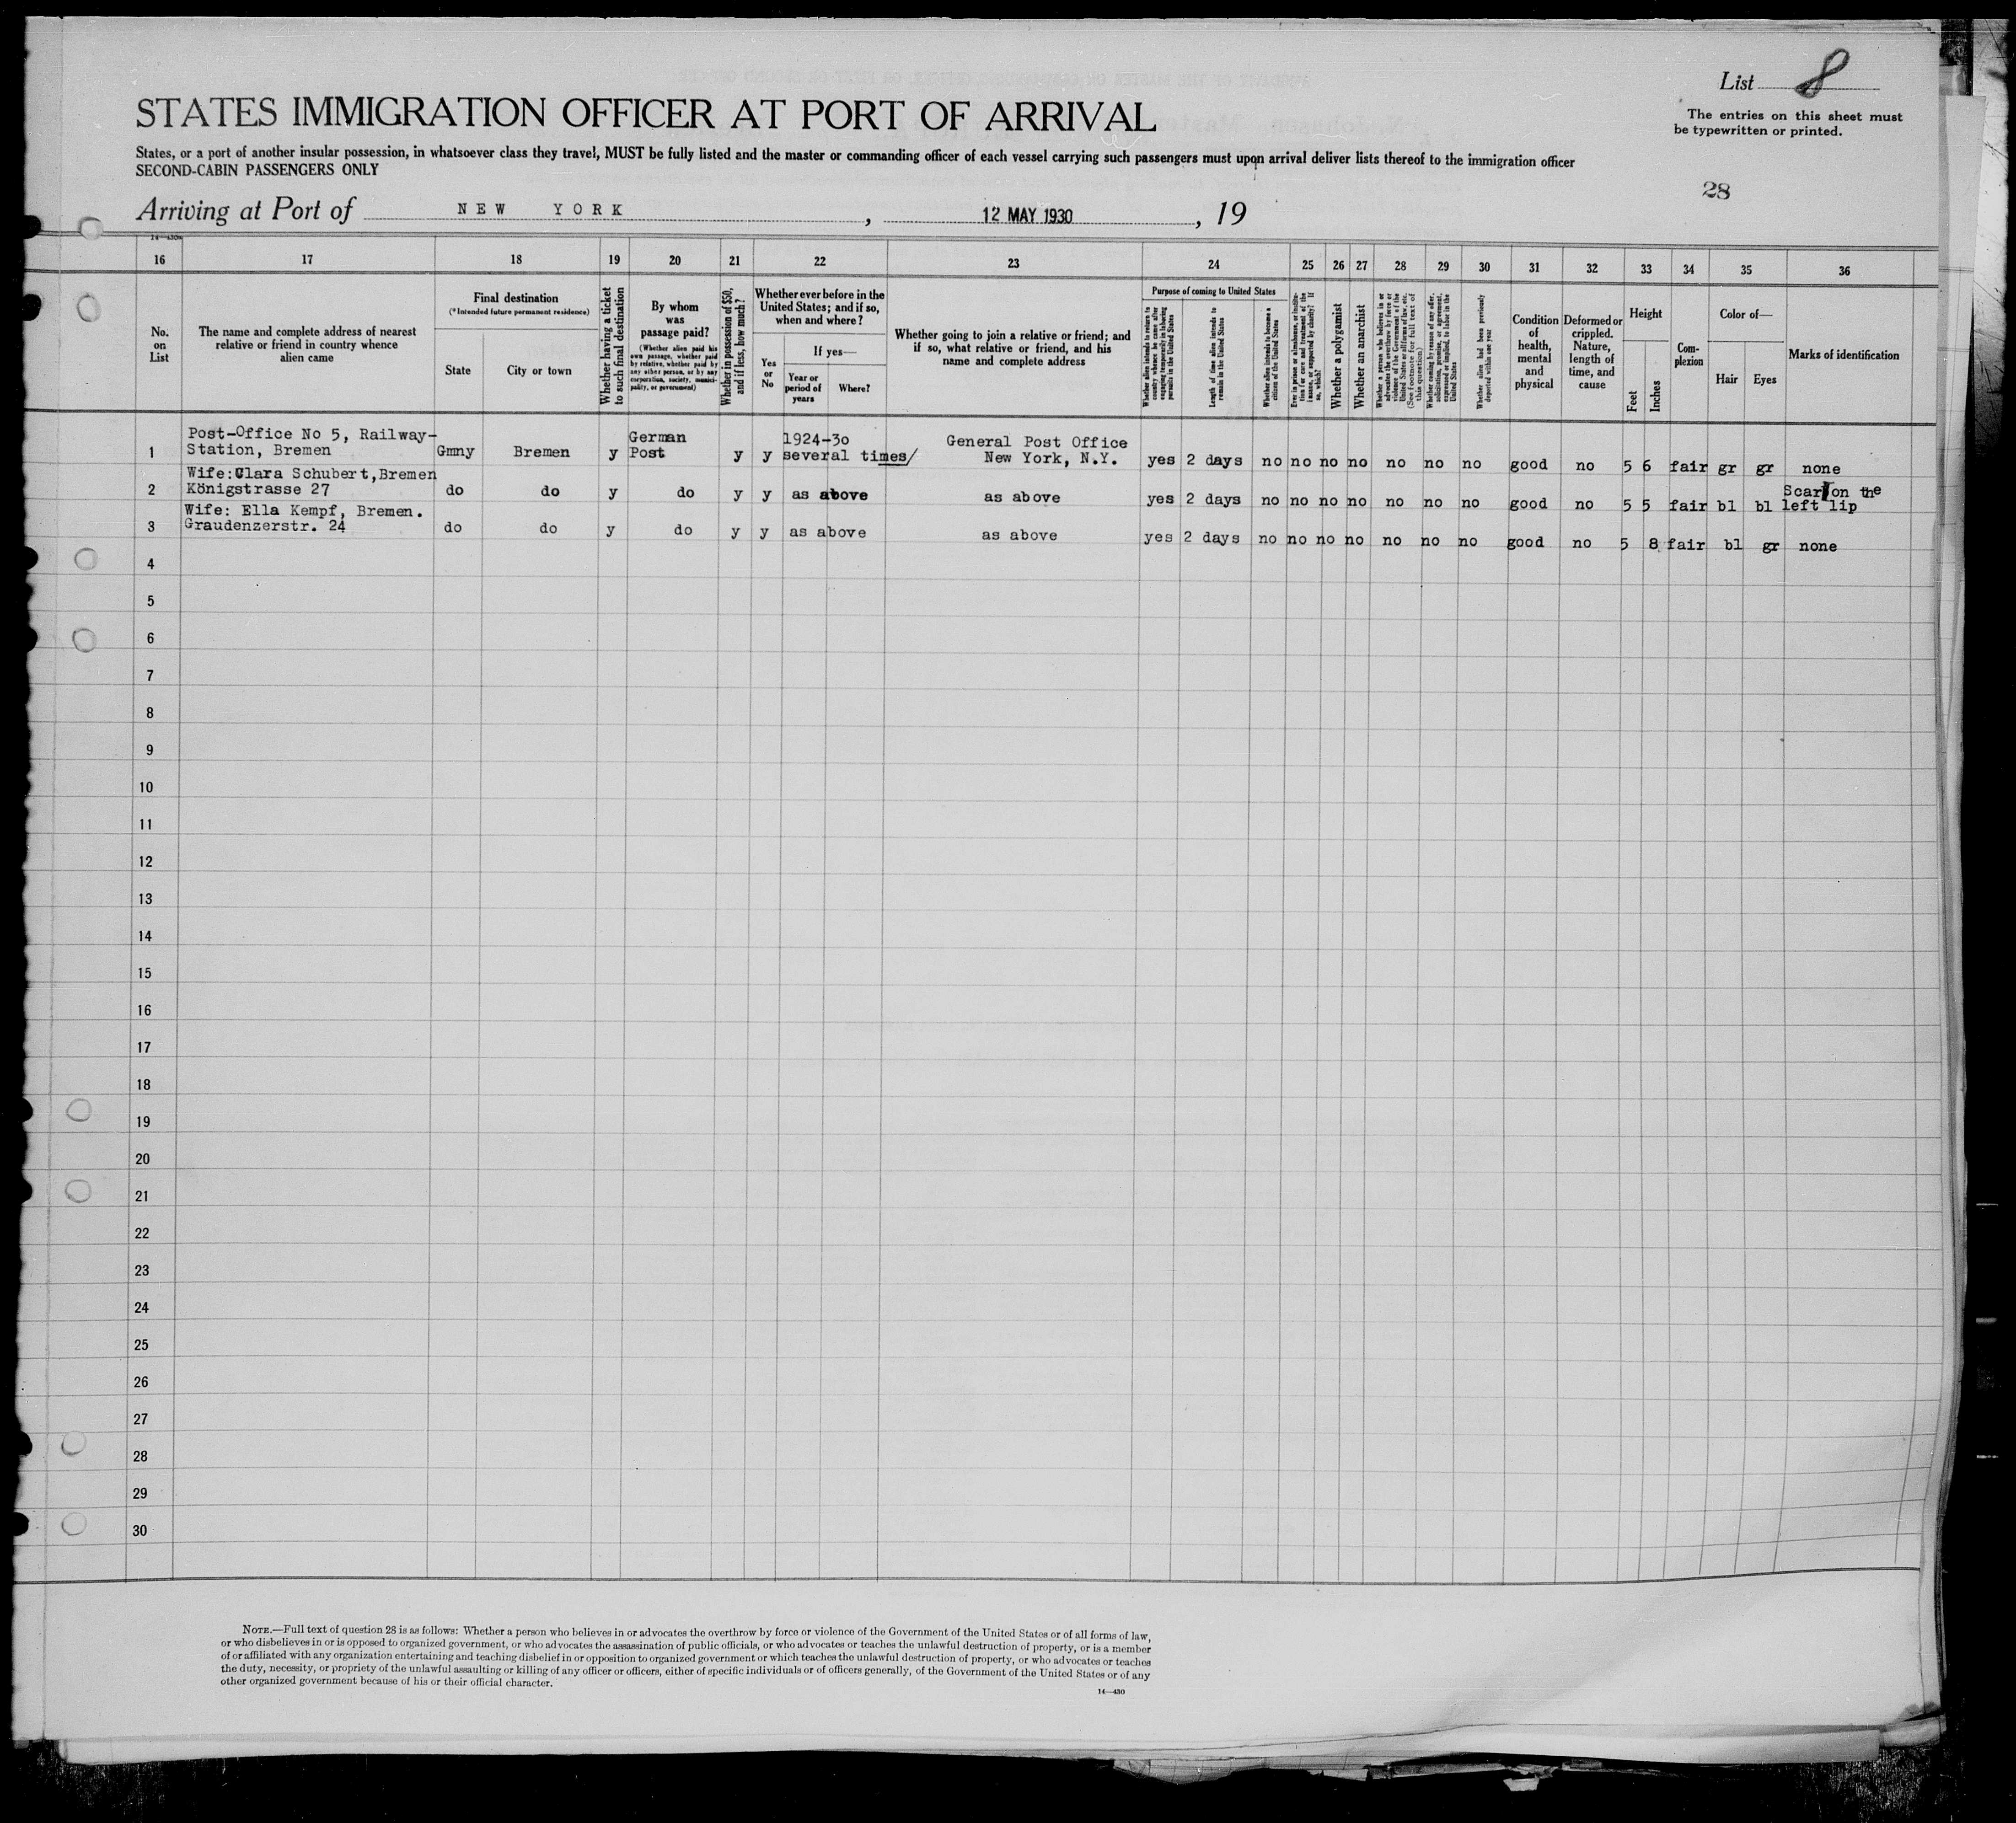 List 8
The entries on this sheet must
be typewritten or printed.
STATES IMMIGRATION OFFICER AT PORT OF ARRIVAL
States, or a port of another insular possession, in whatsoever class they travel, MUST be fully listed and the master or commanding officer of each vessel carrying such passengers must upon arrival deliver lists thereof to the immigration officer
SECOND-CABIN PASSENGERS ONLY
28
Arriving at Port of NEW YORK, 12 MAY 1930, 19
14—430a
16 17 18 19 20 21 22 23 24 25 26 27 28 29 30 31 32 33 34 35 36
No. on List
The name and complete address of nearest relative or friend in country whence alien came
Final destination
(*Intended future permanent residence)
State
City or town
Whether having a ticket to such final destination
By whom was passage paid?
(Whether alien paid his own passage, whether paid by relative, whether paid by any other person, or by any corporation, society, municipality, or government)
Whether in possession of $50, and if less, how much?
Whether ever before in the United States; and if so, when and where?
Yes or No
If yes—
Year or period of years
Where?
Whether going to join a relative or friend; and if so, what relative or friend, and his name and complete address
Purpose of coming to United States
Whether alien intends to return to country whence he came after engaging temporarily in laboring pursuits in the United States
Length of time alien intends to remain in the United States
Whether alien intends to become a citizen of the United States
Ever in prison or almshouse, or institution for care and treatment of the insane, or supported by charity? If so, which?
Whether a polygamist
Whether an anarchist
Whether a person who believes in or advocates the overthrow by force or violence of the Government of the United States or all forms of law, etc. (See footnote for full text of this question)
Whether coming by reason of any offer, solicitation, promise, or agreement, expressed or implied, to labor in the United States
Whether alien had been previously deported within one year
Condition of health, mental and physical
Deformed or crippled. Nature, length of time, and cause
Height
Feet
Inches
Complexion
Color of—
Hair
Eyes
Marks of identification
1 Post-Office No 5, Railway-
Station, Bremen Gmny Bremen y German Post y y 1924-30 several times/ General Post Office New York, N.Y. yes 2 days no no no no no no no good no 5 6 fair gr gr none
2 Wife: Clara Schubert, Bremen
Königstrasse 27 do do y do y y as above as above yes 2 days no no no no no no no good no 5 5 fair bl bl Scar on the left lip
3 Wife: Ella Kempf, Bremen.
Graudenzerstr. 24 do do y do y y as above as above yes 2 days no no no no no no no good no 5 8 fair bl gr none
4
5
6
7
8
9
10
11
12
13
14
15
16
17
18
19
20
21
22
23
24
25
26
27
28
29
30
NOTE.—Full text of question 28 is as follows: Whether a person who believes in or advocates the overthrow by force or violence of the Government of the United States or of all forms of law,
or who disbelieves in or is opposed to organized government, or who advocates the assassination of public officials, or who advocates or teaches the unlawful destruction of property, or is a member
of or affiliated with any organization entertaining and teaching disbelief in or opposition to organized government or which teaches the unlawful destruction of property, or who advocates or teaches
the duty, necessity, or propriety of the unlawful assaulting or killing of any officer or officers, either of specific individuals or of officers generally, of the Government of the United States or of any
other organized government because of his or their official character.
14—430